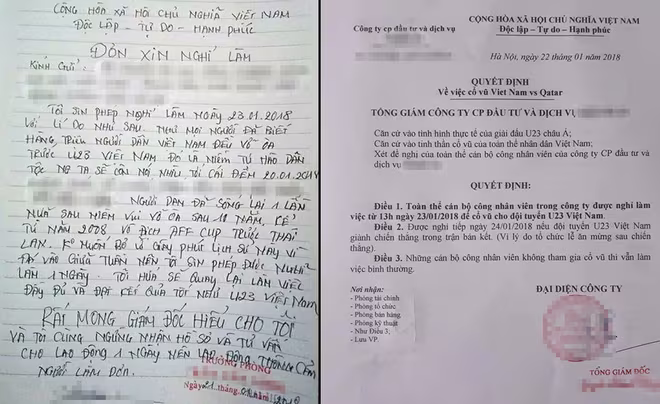 CỘNG HÒA XÃ HỘI CHỦ NGHĨA VIỆT NAM
ĐỘC LẬP - TỰ DO - HẠNH PHÚC
ĐƠN XIN NGHỈ LÀM
KÍNH GỬI:
TÔI XIN PHÉP NGHỈ LÀM NGÀY 23.01.2018
VỚI LÍ DO NHƯ SAU. NHƯ MỌI NGƯỜI ĐÃ BIẾT
HÀNG TRIỆU NGƯỜI DÂN VIỆT NAM ĐỀU VỠ ÒA
TRƯỚC U23 VIỆT NAM ĐÓ LÀ NIỀM TỰ HÀO DÂN
TỘC NG TA SẼ CÒN NÓI NHIỀU TỚI CÁI ĐÊM 20.01.2018
NGƯỜI DÂN ĐÃ SỐNG LẠI 1 LẦN
NỮA SAU NIỀM VUI VỠ ÒA SAU 10 NĂM, KỂ
TỪ NĂM 2008 VÔ ĐỊCH AFF CUP TRƯỚC THÁI
LAN. KO MUỐN BỎ LỠ GIÂY PHÚT LỊCH SỬ NÀY VÌ
ĐÁ VÀO GIỮA TUẦN NÊN TÔI XIN PHÉP ĐƯỢC NGHỈ
LÀM 1 NGÀY. TÔI HỨA SẼ QUAY LẠI LÀM VIỆC
ĐẦY ĐỦ VÀ ĐẠT KẾT QUẢ TỐT NHƯ U23 VIỆT NAM
RẤT MONG GIÁM ĐỐC HIỂU CHO TÔI
VÀ TÔI CŨNG NGỪNG NHẬN HỒ SƠ VÀ TƯ VẤN
CHO LAO ĐỘNG 1 NGÀY NÊN LAO ĐỘNG THÔNG CẢM
NGƯỜI LÀM ĐƠN.
TRƯỞNG PHÒNG
Ngày 21 tháng 01 năm 2018
Công ty cp đầu tư và dịch vụ
CỘNG HÒA XÃ HỘI CHỦ NGHĨA VIỆT NAM
Độc lập – Tự do – Hạnh phúc
Hà Nội, ngày 22 tháng 01 năm 2018
QUYẾT ĐỊNH
Về việc cổ vũ Viet Nam vs Qatar
TỔNG GIÁM CÔNG TY CP ĐẦU TƯ VÀ DỊCH VỤ
Căn cứ vào tình hình thực tế của giải đấu U23 châu Á;
Căn cứ vào tinh thần cổ vũ của toàn thể nhân dân Việt Nam;
Xét đề nghị của toàn thể cán bộ công nhân viên của công ty CP đầu tư và
dịch vụ
QUYẾT ĐỊNH:
Điều 1. Toàn thể cán bộ công nhân viên trong công ty được nghỉ làm
việc từ 13h ngày 23/01/2018 để cổ vũ cho đội tuyển U23 Việt Nam.
Điều 2. Được nghỉ tiếp ngày 24/01/2018 nếu đội tuyển U23 Việt Nam
giành chiến thắng trong trận bán kết. (Vì lý do tổ chức lễ ăn mừng sau chiến
thắng).
Điều 3. Những cán bộ công nhân viên không tham gia cổ vũ thì vẫn làm
việc bình thường.
Nơi nhận:
- Phòng tài chính
- Phòng tổ chức
- Phòng bán hàng
- Phòng kỹ thuật
- Như Điều 3;
- Lưu VP.
ĐẠI DIỆN CÔNG TY
TỔNG GIÁM ĐỐC